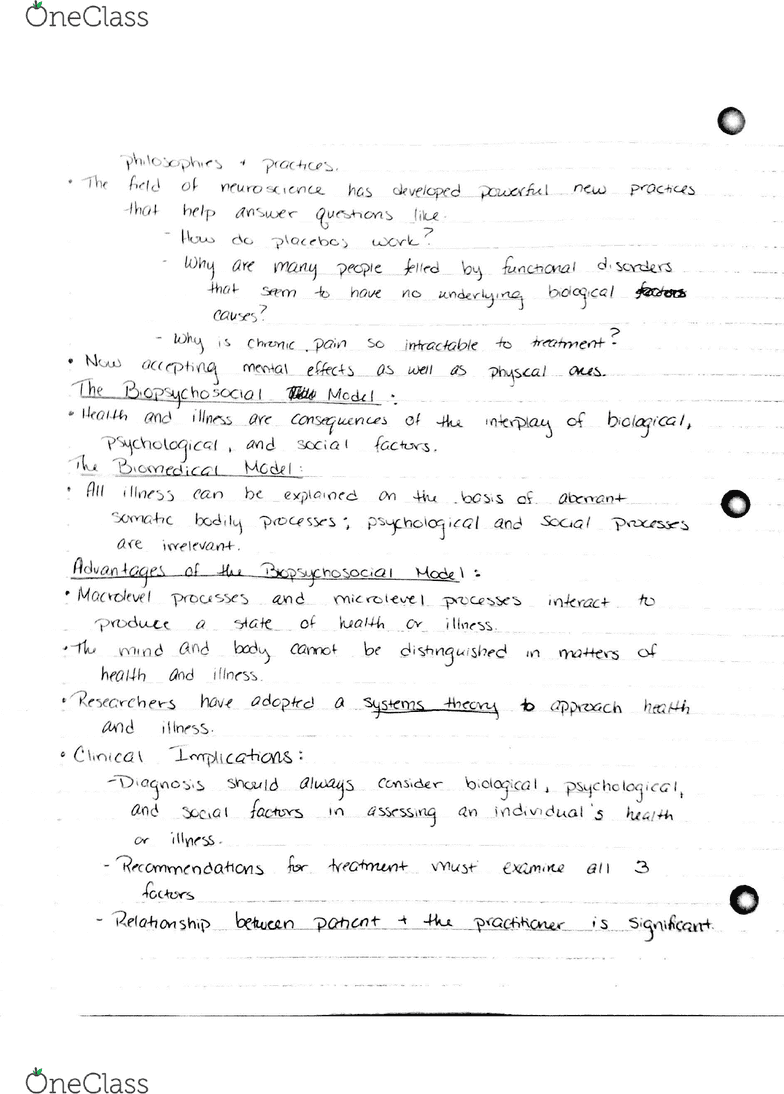 OneClass
philosophies + practices.
• The field of neuroscience has developed powerful new practices
that help answer questions like.
- How do placebos work?
- Why are many people felled by functional disorders
that seem to have no underlying biological factors
causes?
- Why is chronic pain so intractable to treatment?
• Now accepting mental effects as well as physcal ones.
The Biopsychosocial Model:
• Health and illness are consequences of the interplay of biological,
psychological, and social factors.
The Biomedical Model:
• All illness can be explained on the basis of aberrant
somatic bodily processes; psychological and social processes
are irrelevant.
Advantages of the Biopsychosocial Model:
• Macrolevel processes and microlevel processes interact to
produce a state of health or illness.
• The mind and body cannot be distinguished in matters of
health and illness.
• Researchers have adopted a systems theory to approach health
and illness.
• Clinical Implications:
- Diagnosis should always consider biological, psychological,
and social factors in assessing an individual's health
or illness.
- Recommendations for treatment must examine all 3
factors
- Relationship between patient + the practitioner is significant.
OneClass